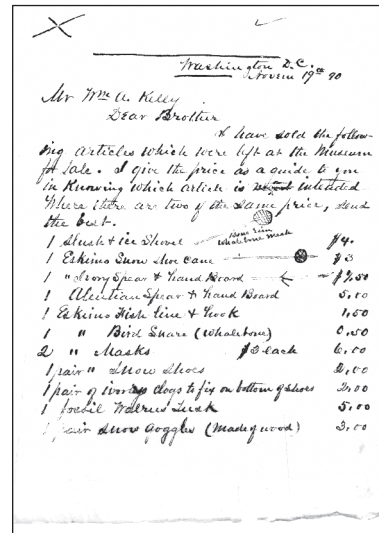 Washington D.C.
Novem 19th 90
Mr Wm A. Kelly
Dear Brother
I have sold the follow-
ing articles which were left at the Museum
for sale. I give the price as a guide to you
in Knowing which article is intended
Where there are two of the same price, send
the best.
1 Slush & ice Shovel Bone rim whalebone mesh $4.
1 Eskimo Snow shoe cane $3
1 " Ivory Spear & hand Board $7.50
1 Aleutian Spear & hand Board 5.00
1 Eskimo Fish line & hook 1.50
1 " Bird Snare (Whalebone) 0.50
2 " Masks $3 each 6.00
1 pair " Snow Shoes 2.00
1 pair of clogs to fix on bottom of shoes 2.00
1 fossil Walrus Tusk 5.00
1 pair snow goggles (Made of wood) 3.00